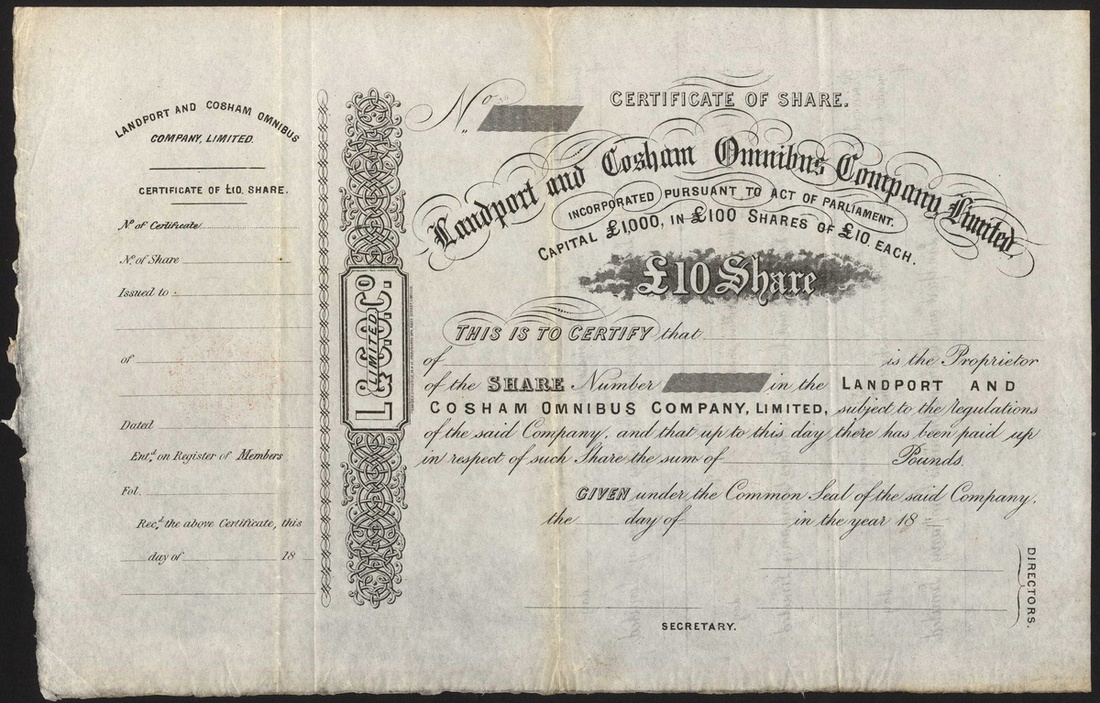 LANDPORT AND COSHAM OMNIBUS
COMPANY, LIMITED.
CERTIFICATE OF £10. SHARE.
No. of Certificate
No. of Share
Issued to
of
Dated
Entd. on Register of Members
Fol.
Recd. the above Certificate, this
day of 18
L & C.O. Co.
LIMITED
No.
CERTIFICATE OF SHARE.
Landport and Cosham Omnibus Company Limited.
INCORPORATED PURSUANT TO ACT OF PARLIAMENT.
CAPITAL £1,000, IN £100 SHARES OF £10. EACH.
£10 Share
THIS IS TO CERTIFY that
of is the Proprietor
of the SHARE Number in the LANDPORT AND
COSHAM OMNIBUS COMPANY, LIMITED, subject to the Regulations
of the said Company, and that up to this day there has been paid up
in respect of such Share the sum of Pounds.
GIVEN under the Common Seal of the said Company,
the day of in the year 18
DIRECTORS.
SECRETARY.